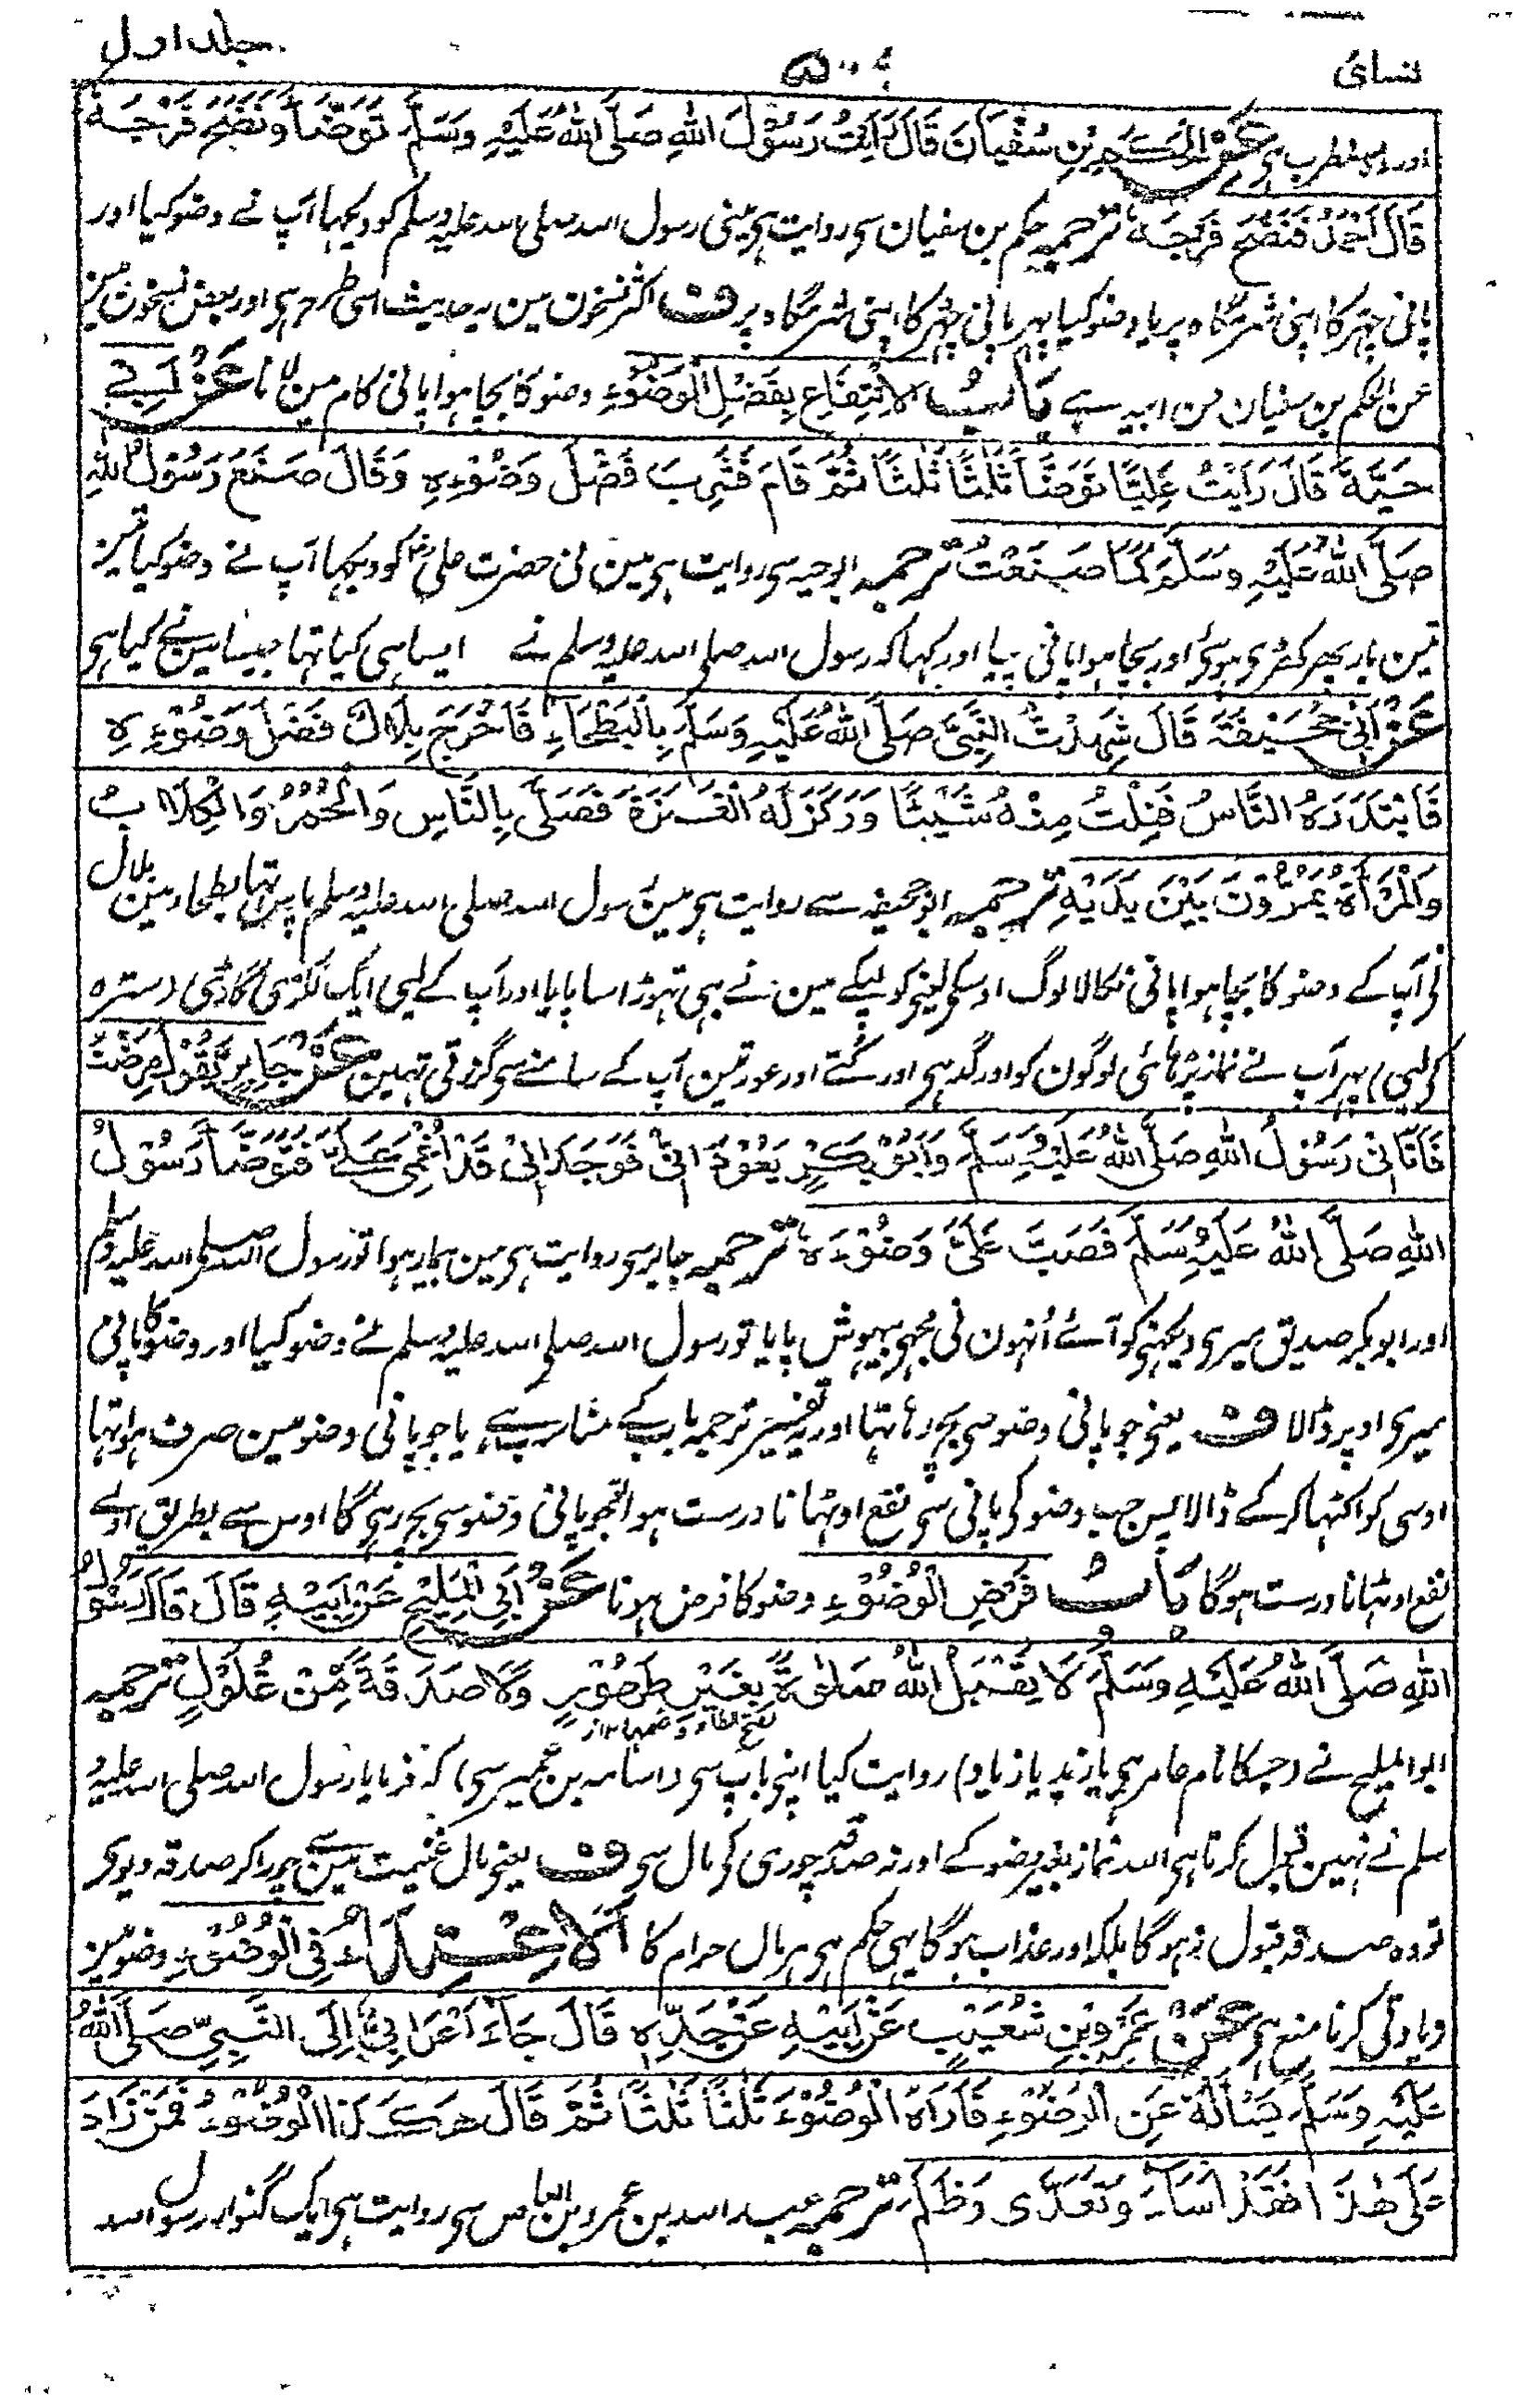 نسائی
۵۰
جلد اول
اور مضطرب ہی عَنْ الْحَكَمِ بْنِ سُفْيَانَ قَالَ رَأَيْتُ رَسُوْلَ اللهِ صَلَّى اللهُ عَلَيْهِ وَسَلَّمَ تَوَضَّأَ وَنَضَحَ فَرْجَهٗ
قَالَ اَحْمَدُ فَنَضَحَ فَرْجَهٗ ترجمہ حکم بن سفیان سی روایت ہی مینی رسول اللہ صلی اللہ علیہ وسلم کو دیکہا آپ نے وضو کیا اور
پانی چہڑکا اپنی شرمگاہ پر یا وضو کیا پہر پانی چہڑکا اپنی شرمگاہ پر ف اکثر نسخون مین یہ حدیث اسی طرح ہی اور بعض نسخون مین
عن الحکم بن سفیان عن ابیہ ہے بَابُ الْاِنْتِفَاعِ بِفَضْلِ الْوَضُوْءِ وضو کا بچا ہوا پانی کام مین لانا عَنْ اَبِيْ
حَيَّةَ قَالَ رَاَيْتُ عَلِيًّا تَوَضَّأَ ثَلٰثًا ثَلٰثًا ثُمَّ قَامَ فَشَرِبَ فَضْلَ وَضُوْءِهٖ وَقَالَ صَنَعَ رَسُوْلُ اللهِ
صَلَّى اللهُ عَلَيْهِ وَسَلَّمَ كَمَا صَنَعْتُ ترجمہ ابو حیہ سی روایت ہی مین نی حضرت علیؓ کو دیکہا آپ نے وضو کیا تین
تین بار پہر کہڑی ہوئی اور بچا ہوا پانی پیا اور کہا کہ رسول اللہ صلی اللہ علیہ وسلم نے ایسا ہی کیا تہا جیسا مین نے کیا ہی
عَنْ اَبِيْ جُحَيْفَةَ قَالَ شَهِدْتُ النَّبِيَّ صَلَّى اللهُ عَلَيْهِ وَسَلَّمَ بِالْبَطْحَاءِ فَاَخْرَجَ بِلَالٌ فَضْلَ وَضُوْءِهٖ
فَابْتَدَرَهُ النَّاسُ فَنِلْتُ مِنْهُ شَيْئًا وَرَكَزَ لَهُ الْعَنَزَةَ فَصَلَّى بِالنَّاسِ وَالْحُمُرُ وَالْكِلَابُ
وَالْمَرْأَةُ يَمُرُّوْنَ بَيْنَ يَدَيْهِ ترجمہ ابو جحیفہ سے روایت ہی مین رسول اللہ صلی اللہ علیہ وسلم پاس تہا بطحا مین بلال
نی آپ کے وضو کا بچا ہوا پانی نکالا لوگ اوسکی لینی کو لپکے مین نے بہی تہوڑا سا پایا اور آپ کے لیی ایک لکڑی گاڑی (سترہ
کی لیی) پہر آپ نے نماز پڑہائی لوگون کو اور گدہی اور کتے اور عورتین آپ کے سامنے سی گزرتی تہین عَنْ جَابِرٍ يَّقُوْلُ مَرِضْتُ
فَاَتَانِيْ رَسُوْلُ اللهِ صَلَّى اللهُ عَلَيْهِ وَسَلَّمَ وَاَبُوْ بَكْرٍ يَعُوْدَانِيْ فَوَجَدَانِيْ قَدْ اُغْمِيَ عَلَيَّ فَتَوَضَّأَ رَسُوْلُ
اللهِ صَلَّى اللهُ عَلَيْهِ وَسَلَّمَ فَصَبَّ عَلَيَّ وَضُوْءَهٗ ترجمہ جابر سی روایت ہی مین بیمار ہوا تو رسول اللہ صلی اللہ علیہ وسلم
اور ابو بکر صدیق میری دیکہنی کو آئے اُنہون نی مجہی بیہوش پایا تو رسول اللہ صلی اللہ علیہ وسلم نے وضو کیا اور وضو کا پانی
میری اوپر ڈالا ف یعنی جو پانی وضو سی بچ رہا تہا اور یہ تفسیر ترجمہ باب کے مناسب ہے یا جو پانی وضو مین صرف ہوا تہا
اوسی کو اکٹہا کر کے ڈالا پس جب وضو کی پانی سی نفع اوٹہانا درست ہوا تو جو پانی وضو سی بچ رہی گا اوس سے بطریق اولے
نفع اوٹہانا درست ہوگا بَابُ فَرْضِ الْوُضُوْءِ وضو کا فرض ہونا عَنْ اَبِي الْمَلِيْحِ عَنْ اَبِيْهِ قَالَ قَالَ رَسُوْلُ
اللهِ صَلَّى اللهُ عَلَيْهِ وَسَلَّمَ لَا يَقْبَلُ اللهُ صَلٰوةً بِغَيْرِ طَهُوْرٍ وَّلَا صَدَقَةً مِّنْ غُلُوْلٍ ترجمہ
بفتح الطاء وضمہا
ابو الملیح نے (جسکا نام عامر ہی یا زید یا زیاد) روایت کیا اپنی باپ سی (اسامہ بن عمیر سی) کہ فرمایا رسول اللہ صلی اللہ علیہ
سلم نے نہین قبول کرتا ہی اللہ نماز بغیر وضو کے اور نہ صدقہ چوری کی مال سی ف یعنی مال غنیمت مین سے چورا کر صدقہ دیوی
تو وہ صدقہ قبول نہ ہوگا بلکہ اور عذاب ہوگا یہی حکم ہی ہر مال حرام کا اَلْاِعْتِدَاءُ فِي الْوُضُوْءِ وضو مین
زیادتی کرنا منع ہی عَنْ عَمْرِو بْنِ شُعَيْبٍ عَنْ اَبِيْهِ عَنْ جَدِّهٖ قَالَ جَاءَ اَعْرَابِيٌّ اِلَى النَّبِيِّ صَلَّى اللهُ
عَلَيْهِ وَسَلَّمَ يَسْأَلُهٗ عَنِ الْوُضُوْءِ فَاَرَاهُ الْوُضُوْءَ ثَلٰثًا ثَلٰثًا ثُمَّ قَالَ هٰكَذَا الْوُضُوْءُ فَمَنْ زَادَ
عَلٰى هٰذَا فَقَدْ اَسَاءَ وَتَعَدّٰى وَظَلَمَ ترجمہ عبد اللہ بن عمرو بن العاص سی روایت ہی ایک گنوار رسول اللہ